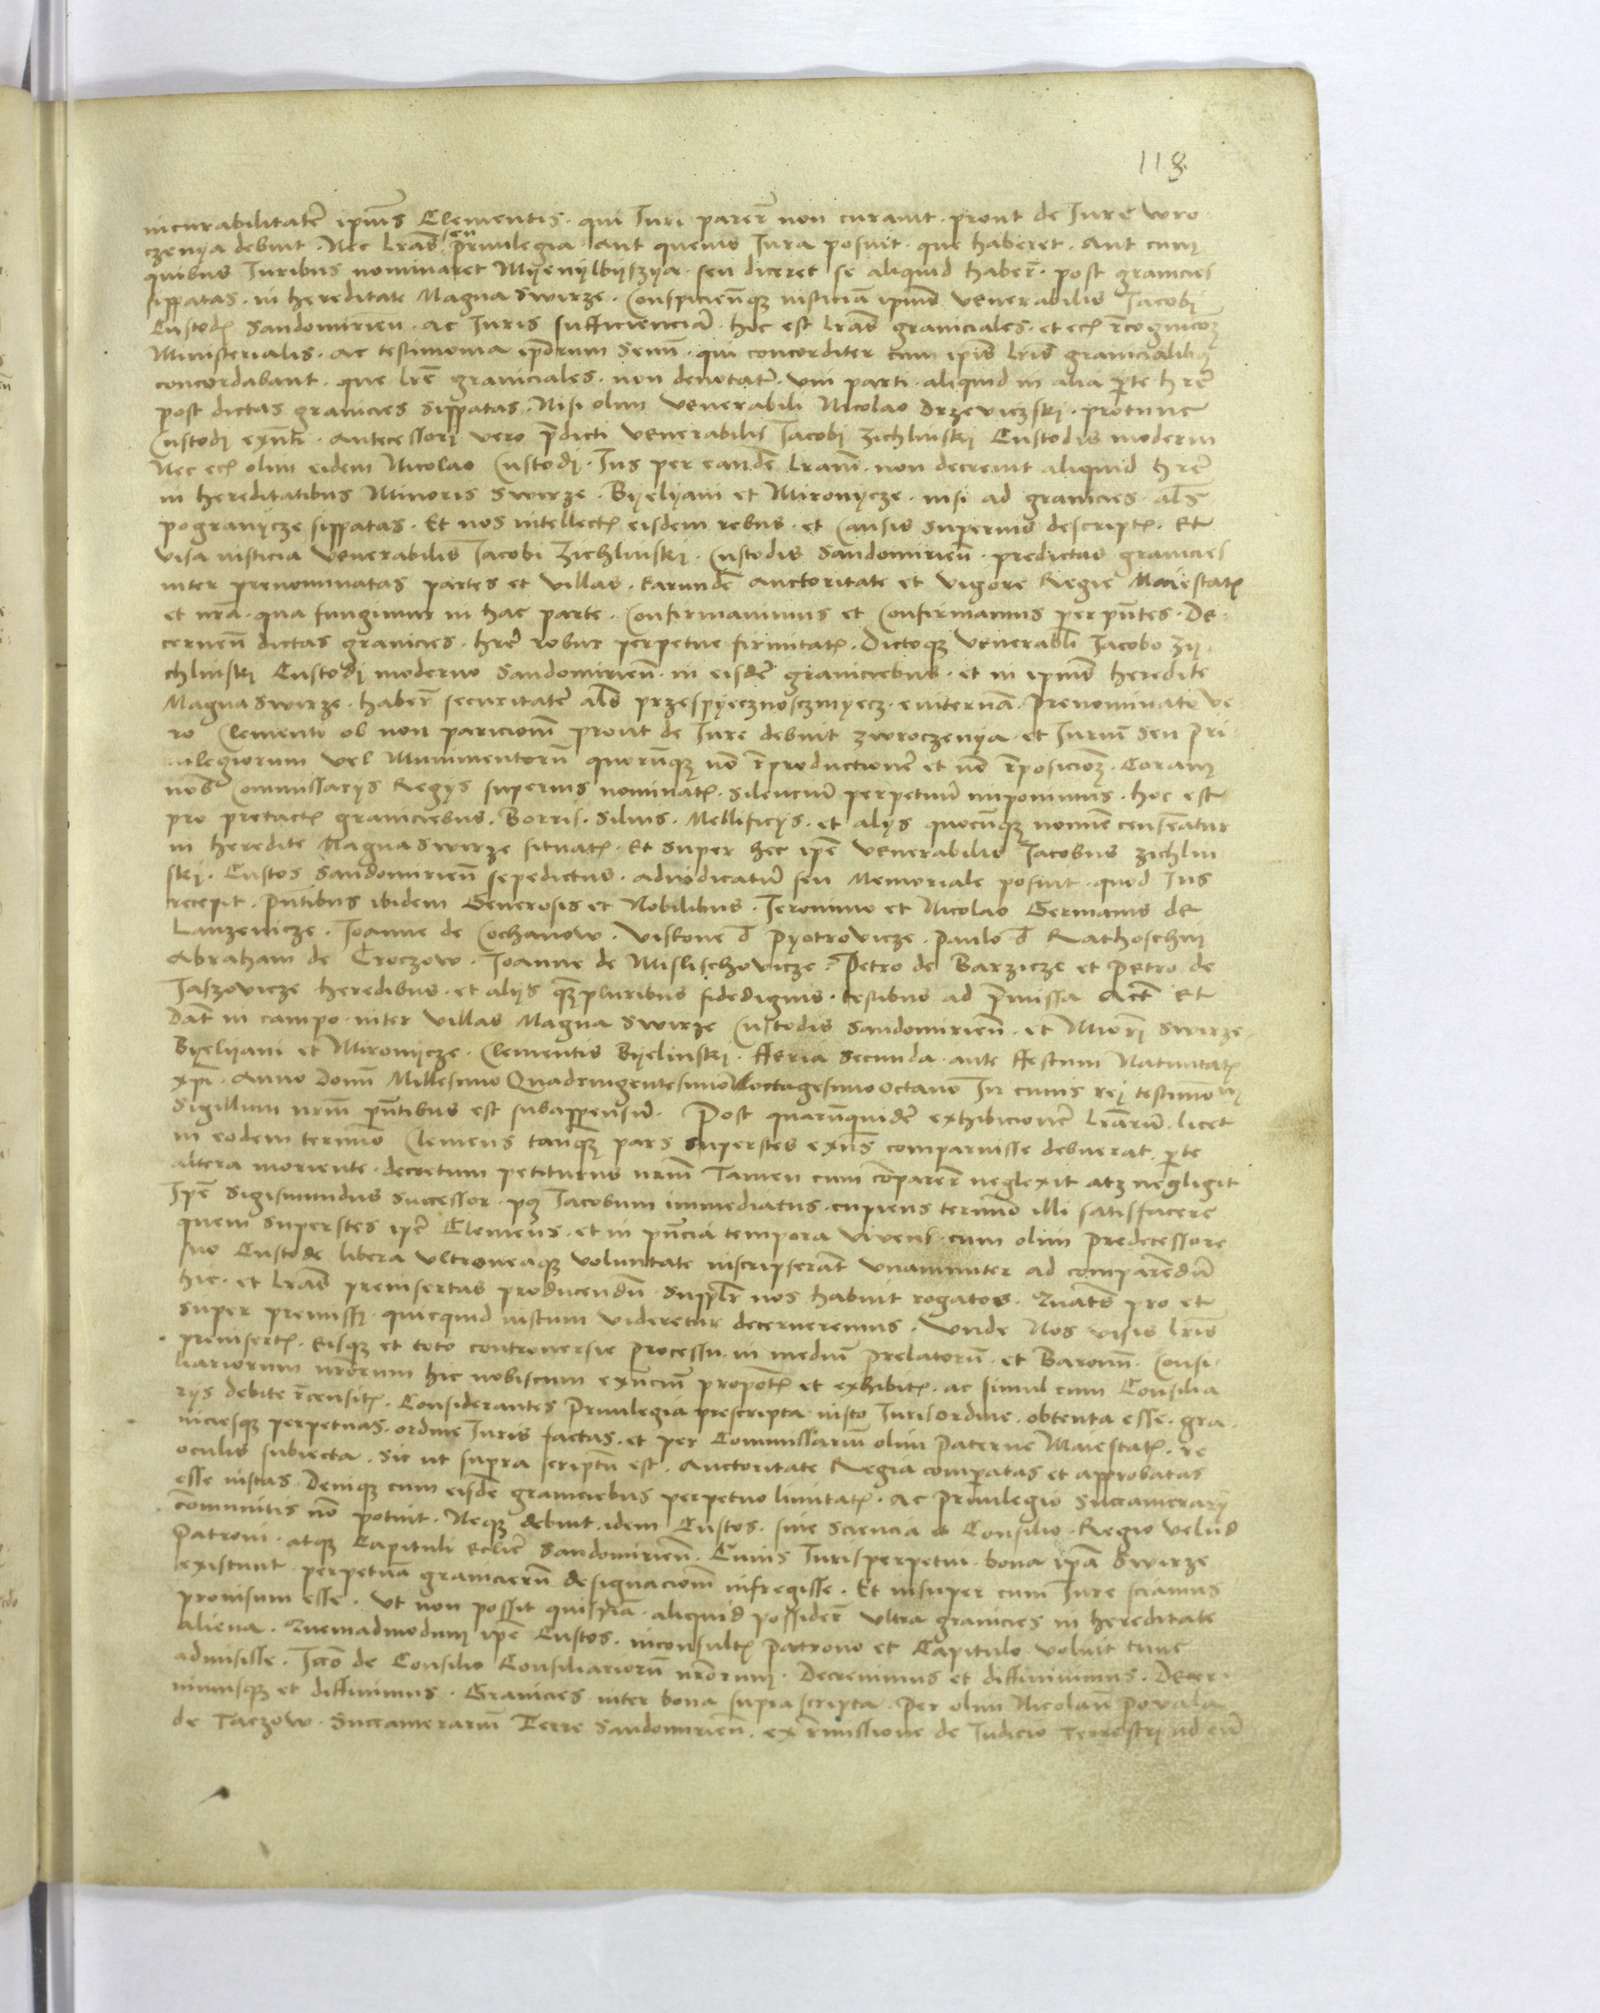 118
incurabilitatē ipius Clementis · qui Juri parer̄ non curavit · prout de Jure wro
czenya debuit · Nec lr̄as seu privilegia Aut quevis Jura posuit · que haberet · Aut cum
quibus Juribus nominaret Myenylbyszya · seu diceret se aliquid haber̄ · post granicies
sippatas · in hereditate Magna Swirze · Conspiciēnqꝫ iusticiā ipius Venerabilis Jacobi
Custodꝫ Sandomirien̄ · Ac Juris sufficienciā · hoc est lr̄as graniciales · et ecꝫ r̄cognicōꝫ
Ministerialis · Ac testimonia ip̄orum Senū · qui concorditer cum ip̄is lr̄is granicialibꝫ
concordabant · que lr̄e graniciales · non denotatꝫ · uni parti · aliquid in alia p̄te hr̄e
post dictas granicies Sippatas · Nisi olim Venerabili Nicolao Drzeviczski · protunc
Custodi exn̄ti · Antecessori vero p̄dicti Venerabilis Jacobi Zichlinski Custodis moderni
Nec ecꝫ olim eidem Nicolao Custodi · Jus per eandē lr̄am · non decrevit aliquid hr̄e
in hereditatibus Minoris Swirze · Byelyani et Mironycze · nisi ad granicies · al̄s
pogranycze sippatas · Et nos intellectꝫ eisdem rebus · et Causis superius descriptꝫ · Et
visa iusticia Venerabilis Jacobi Zichlinski · Custodis Sandomirien̄ · predictas granicies
inter prenominatas partes et villas · Earundē Auctoritate et Vigore Regie Maiestatꝫ
et nr̄a · qua fungimur in hac parte · Confirmavimus et Confirmamus per pn̄tes · De
cernen̄ dictas granicies · hr̄e robur perpetue firmitatꝫ · Dictoqꝫ Venerabli Jacobo Zy
chlinski Custodi moderno Sandomirien̄ · in eisdē graniciebus · et in ipius heredite
Magna Swirze · haber̄ securitatē al̄s przespyecznosczmyecz · eviternā · Prenominato ve
ro Clemento ob non paricionē prout de Jure debuit zwroczenya · et Jurium seu Pri
vilegiorum vel Munimentorū quorūqꝫ nō r̄productionē et nō r̄posicionꝫ · Coram
nob̄ Commissarys Regys superius nominatꝫ · silenciū perpetuū imponimus · hoc est
pro pretactꝫ graniciebus · Borris · Silvis · Mellificys · et alys quocūqꝫ nomine censēatur
in heredite Magna Swirze situatꝫ · Et super hec ip̄e Venerabilis Jacobus Zichlin
ski · Custos Sandomirien̄ sepedictus · adiudicatū seu Memoriale posuit · quod Jus
recepit · Pn̄tibus ibidem Generosis et Nobilibus · Jeronimo et Nicolao Germanis de
Lanzenicze · Joanne de Cochanow · Viskone d̄ Pyotrovicze · Paulo d̄ Rathoschin
Abraham de Croczow · Joanne de Mislischovicze · Petro de Barzicze et Petro de
Jaszovicze heredibus · et alys q̄ꝫpluribus fidedignis · testibus ad p̄missa Act̄ Et
Dat̄ in campo inter villas Magna Swirze Custodis Sandomirien̄ · et Miori Swirze ·
Byelyani et Mironycze · Clementis Byelinski · Feria secunda · ante Festum Nativitatꝫ
xp̄i · Anno Domī Millesimo Quadringentesimo Loctogesimo Octavo In cuius rei testimoniū
Sigillum nr̄m pn̄tibus est subappensū · Post quarūquidē exhibicionē lr̄arū · licet
in eodem termino Clemens tanqꝫ pars superstes exn̄s comparuisse debuerat · p̄te
altera moriente · decretum petiturus nr̄m Tamen cum cōparer̄ neglexit atqꝫ negligit
Ip̄e Sigismundus Successor · pꝫ Jacobum immediatus · cupiens termino illi satisfacere
quem superstes ip̄e Clemens · et in pn̄cia tempora vivens · cum olim Predecessore
suo Custode libera ultroneaqꝫ voluntate inscripserāt unanimiter ad comparēdū
hic · et lr̄as preinsertas producendū · Suppl̄r nos habuit rogatos · Quaten̄s pro et
super premissꝫ · quicquid iustum videretur decerneremus · Unde Nos visis lr̄is
preinsertꝫ · Eisqꝫ et toto controversie processu · in mediū Prelatorū · et Baronū · Consi
liariorum nr̄orum hic nobiscum exn̄ciū propon̄tꝫ et exhibitꝫ · ac simul cum Consilia
rys debite r̄censitꝫ · Considerantes Privilegia prescripta iusto Juris ordine · obtenta esse · gra
niciesqꝫ perpetuas · ordine Juris factas · et per Commissariū olim Paterne Maiestatꝫ · re
oculis subiecta · Sic ut supra scriptū est · Auctoritate Regia comparatas et approbatas
esse iustas · Deniqꝫ cum eisdē graniciebus perpetuo limitatꝫ · Ac Privilegio Succamerary
communitis nō potuit · Neqꝫ debuit idem Custos · sine Sciencia et Consilio · Regio velud
Patroni · atqꝫ Capituli Ecclīe Sandomirien̄ · Cuius Juris perpetui · bona ip̄a Swirze
existunt · perpetuā granicierū designacionē infregisse · Et insuper cum Jure sciamus
provisum esse · Ut non possit quispiā · aliquid possider̄ ultra granicies in hereditate
aliena · Quemadmodum ip̄e Custos · inconsultꝫ Patrono et Capitulo voluit tunc
admisisse · Iccō de Consilio Consiliariorū nr̄orum · Decrevimus et diffinivimus · Decer
nimusqꝫ et diffinimus · Granicies inter bona suprascripta · Per olim Nicolaū Povala
de Taczow · Succamerariū Terre Sandomirien̄ · ex r̄missione de Judicio Terrestri ad eū